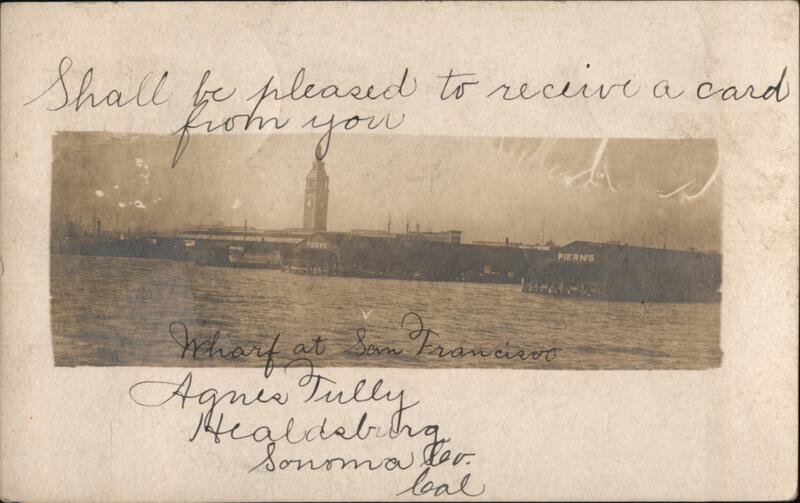 Shall be pleased to receive a card
from you
PIER No 5
Wharf at San Francisco
Agnes Tully
Healdsburg
Sonoma Co.
Cal